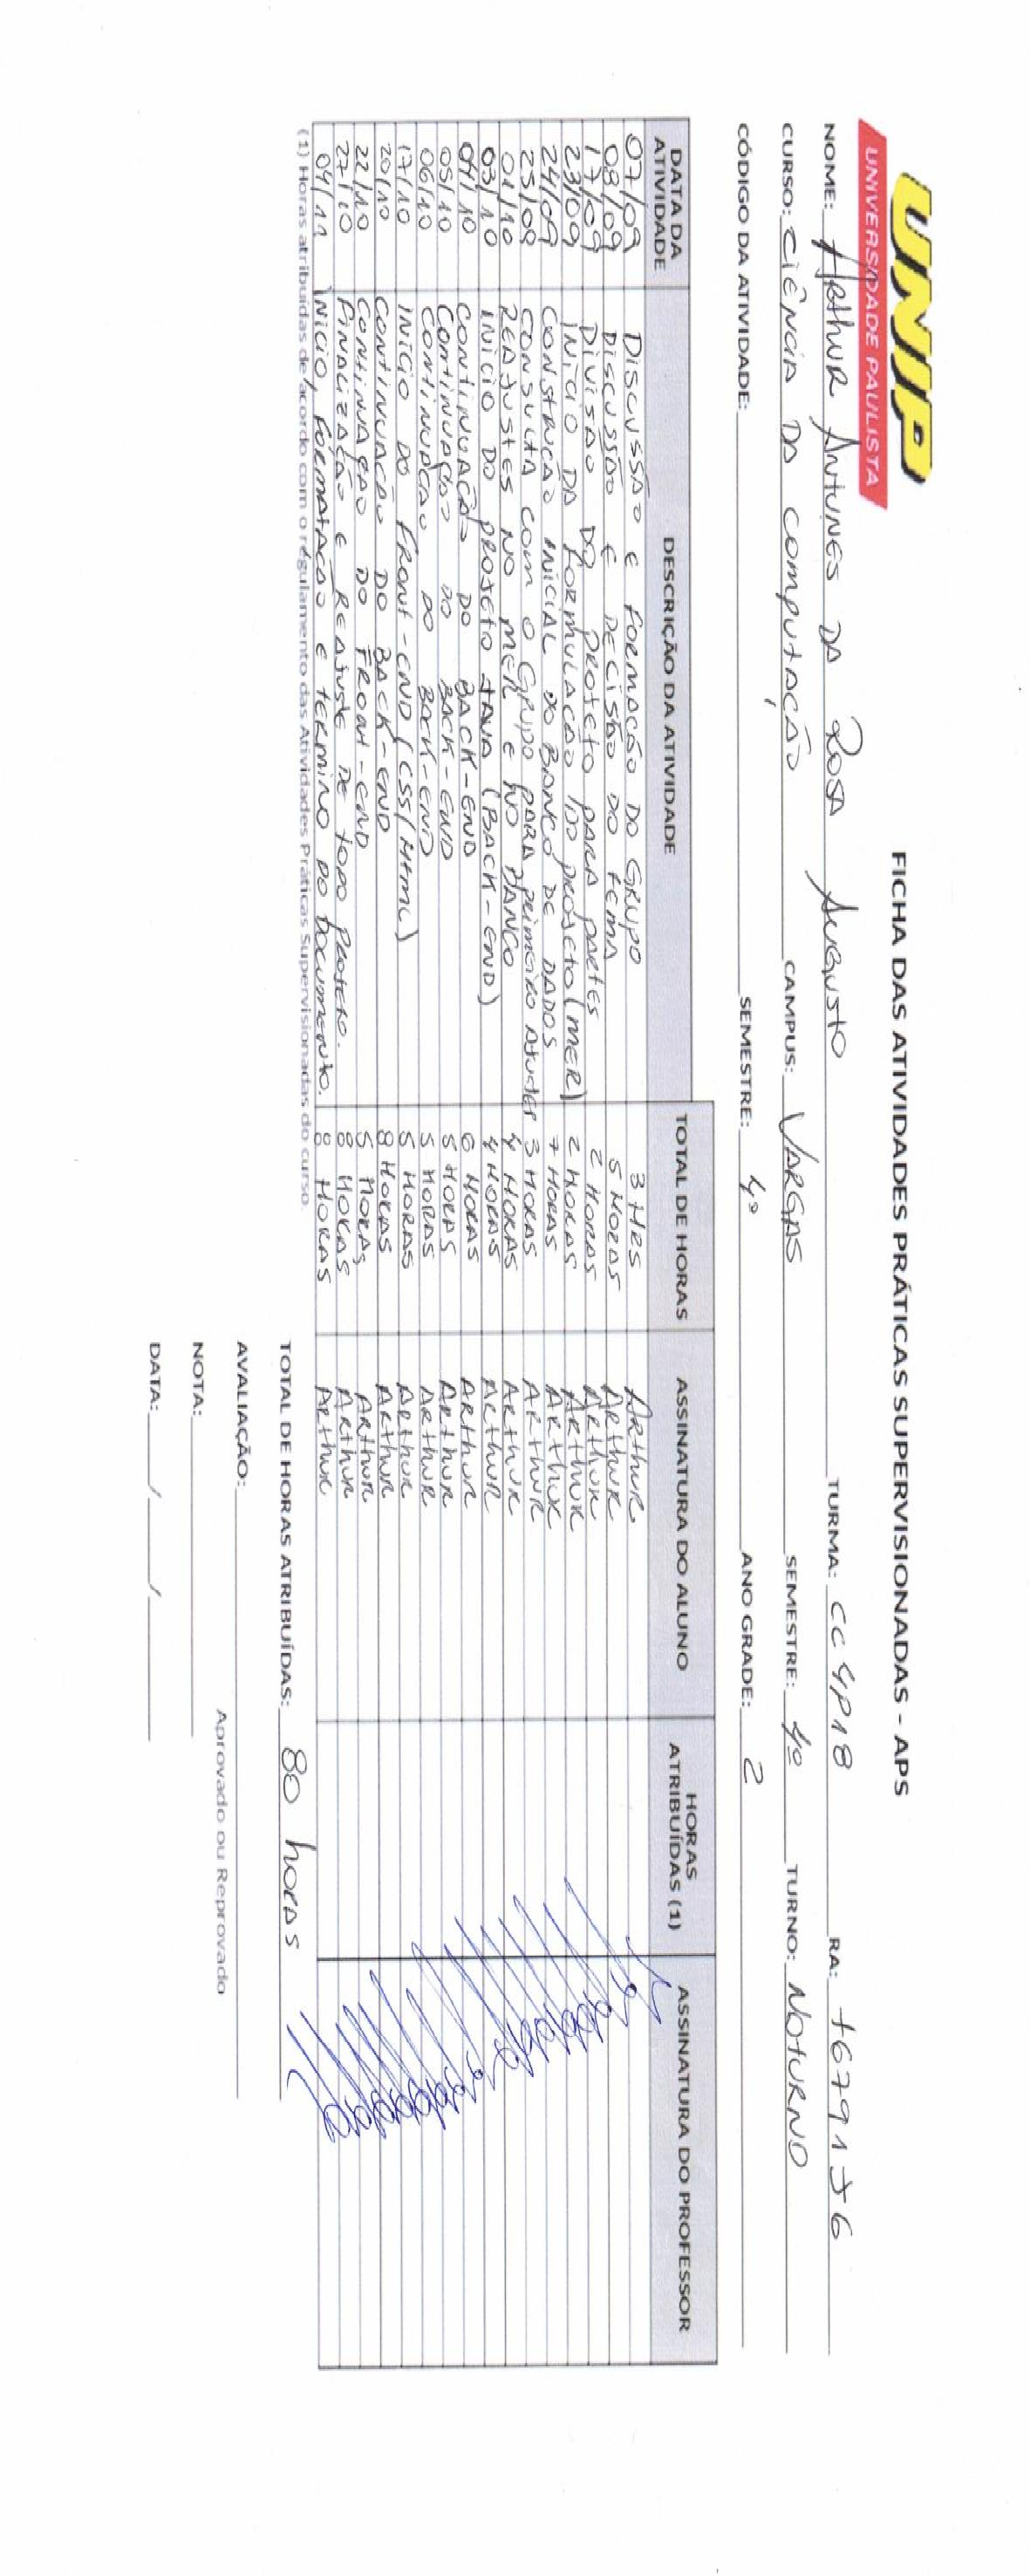 UNIP
UNIVERSIDADE PAULISTA
FICHA DAS ATIVIDADES PRÁTICAS SUPERVISIONADAS - APS
NOME: Arthur Antunes da Rosa Augusto TURMA: CC4P18 RA: T6791J6
CURSO: Ciência da computação CAMPUS: VARGAS SEMESTRE: 4º TURNO: Noturno
CÓDIGO DA ATIVIDADE: SEMESTRE: 4º ANO GRADE: 2
DATA DA ATIVIDADE DESCRIÇÃO DA ATIVIDADE TOTAL DE HORAS ASSINATURA DO ALUNO HORAS ATRIBUÍDAS (1) ASSINATURA DO PROFESSOR
07/09 Discussão e formação do grupo 3 Hrs Arthur
08/09 Discussão e decisão do tema 5 Horas Arthur
17/09 Divisão do projeto para partes 2 Horas Arthur
23/09 Início da formulação do projeto (MER) 2 Horas Arthur
24/09 Construção inicial do banco de dados 7 Horas Arthur
25/09 Consulta com o grupo para primeiro 3 Horas Arthur
01/10 Reajustes no MER e no banco 4 Horas Arthur
03/10 Inicio do projeto Java (Back-end) 4 Horas Arthur
04/10 Continuação do Back-end 6 Horas Arthur
05/10 Continuação do Back-end 5 Horas Arthur
06/10 Continuação do Back-end 5 Horas Arthur
17/10 Início do Front-end (CSS/HTML) 5 Horas Arthur
20/10 Continuação do Back-end 8 Horas Arthur
22/10 Continuação do Front-end 5 Horas Arthur
27/10 Finalização e reajuste de todo projeto. 8 Horas Arthur
04/11 Início, formatação e termino do documento. 8 Horas Arthur
(1) Horas atribuídas de acordo com o regulamento das Atividades Práticas Supervisionadas do curso.
TOTAL DE HORAS ATRIBUÍDAS: 80 horas
AVALIAÇÃO:
Aprovado ou Reprovado
NOTA:
DATA: / /